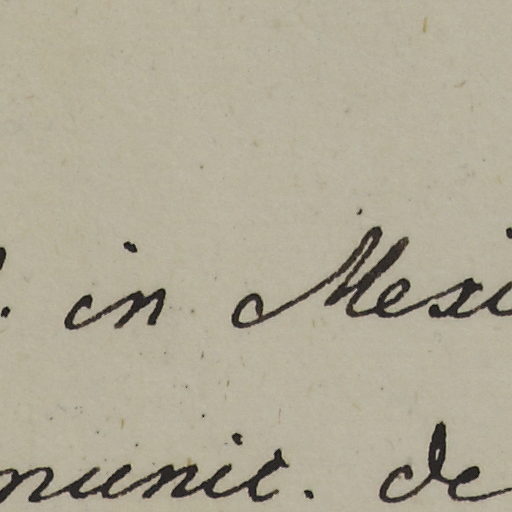 . in Mexi
munic. de